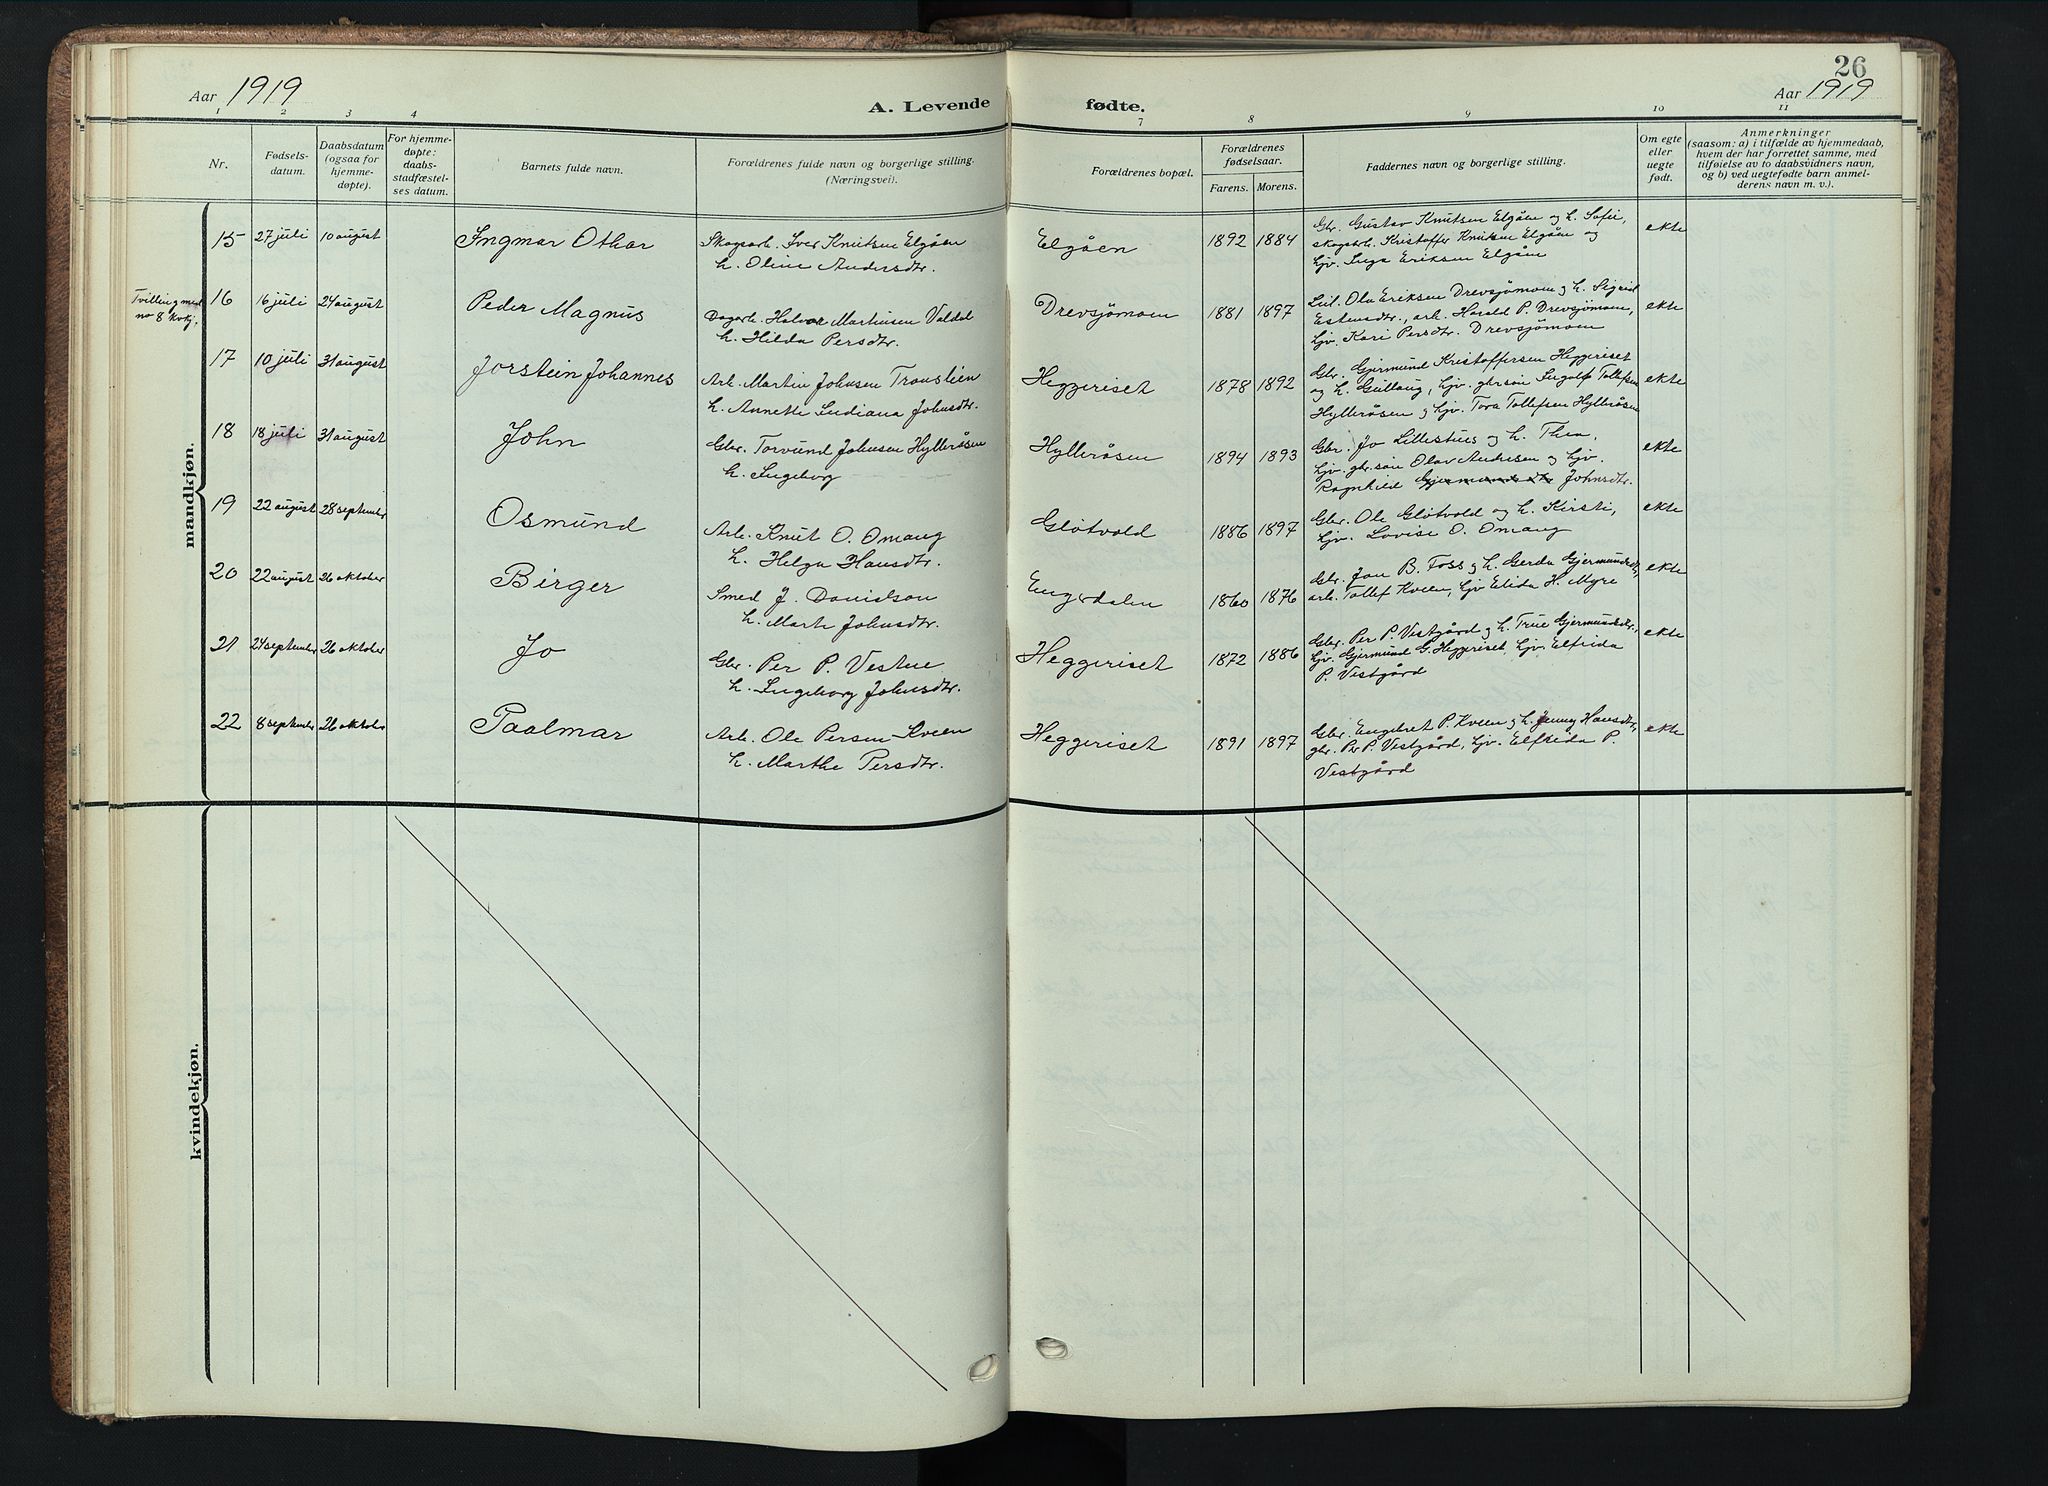 26
Aar 1919
A. Levende fødte.
Aar 1919
1 2 3 4 7 8 9 10 11
Nr.
Fødsels-
datum.
Daabsdatum
(ogsaa for
hjemme-
døpte).
For hjemme-
døpte:
daabs-
stadfæstel-
ses datum.
Barnets fulde navn.
Forældrenes fulde navn og borgerlige stilling.
(Næringsvei).
Forældrenes bopæl.
Forældrenes
fødselsaar.
Farens. Morens.
Faddernes navn og borgerlige stilling.
Om egte
eller
uegte
født.
Anmerkninger
(saasom: a) i tilfælde av hjemmedaab,
hvem der har forrettet samme, med
tilføielse av to daabsvidners navn,
og b) ved uegtefødte barn anmel-
derens navn m. v.).
mandkjøn.
15 27 juli 10 august Ingmar Othar
Skogsarb. Iver Knutsen Elgåen
h. Oline Andersdtr.
Elgåen 1892 1884
Gbr. Gustav Knutsen Elgåen og h. Sofie,
skogsarb. Kristoffer Knutsen Elgåen og
hjv. Inga Eriksen Elgåen
ekte
Tvilling med
no 8 kvkj.
16 16 juli 24 august Peder Magnus
Dagarb. Halvor Martinsen Valdal
h. Hilda Persdtr.
Drevsjömoen 1881 1897
Ola Eriksen Drevsjömoen og h. Sigrid
Estensdtr., arb. Harald P. Drevsjömoen,
hjv. Kari Persdtr. Drevsjömoen
ekte
17 10 juli 31 august Jorstein Johannes
Arb. Martin Johnsen Tronslien
h. Annette Indiana Johnsdtr.
Heggeriset 1878 1892
Gbr. Gjermund Kristoffersen Heggeriset
og h. Gullaug, hjv. gbr.søn Ingolf Tollefsen
Hylleråsen og hjv. Tora Tollefsen Hylleråsen
ekte
18 18 juli 31 august John
Gbr. Torvund Johnsen Hylleråsen
h. Ingeborg
Hylleråsen 1894 1893
Gbr. Jo Lillestues og h. Thea,
hjv. gbr.søn Olav Andresen og hjv.
Ragnhild Gjermundsdtr Johnsdtr.
ekte
19 22 august 28 september Osmund
Arb. Knut O. Omang
h. Helga Hansdtr.
Gløtvold 1886 1897
Gbr. Ole Gløtvold og h. Kirsti,
hjv. Lovise O. Omang
ekte
20 22 august 26 oktober Birger
Smed J. Danielson
h. Marte Johnsdtr.
Engerdalen 1860 1876
Gbr. Jon B. Foss og h. Gerda Gjermundsdtr,
arb. Tollef Kveen, hjv Elida H. Myre
ekte
21 24 september 26 oktober Jo
Gbr. Per P. Vestue
h. Ingeborg Johnsdtr.
Heggeriset 1872 1886
Gbr. Per P. Vestgård og h. True Gjermundsdtr.,
hjv. Gjermund G. Heggeriset, hjv. Elfrida
P. Vestgård
ekte
22 8 september 26 oktober Paalmar
Arb. Ole Persen Kveen
h. Marthe Persdtr.
Heggeriset 1891 1897
Gbr. Engebret P. Kveen og h. Jenny Hansdtr,
gbr. Per P. Vestgård, hjv. Elfrida P.
Vestgård
ekte
kvindekjøn.